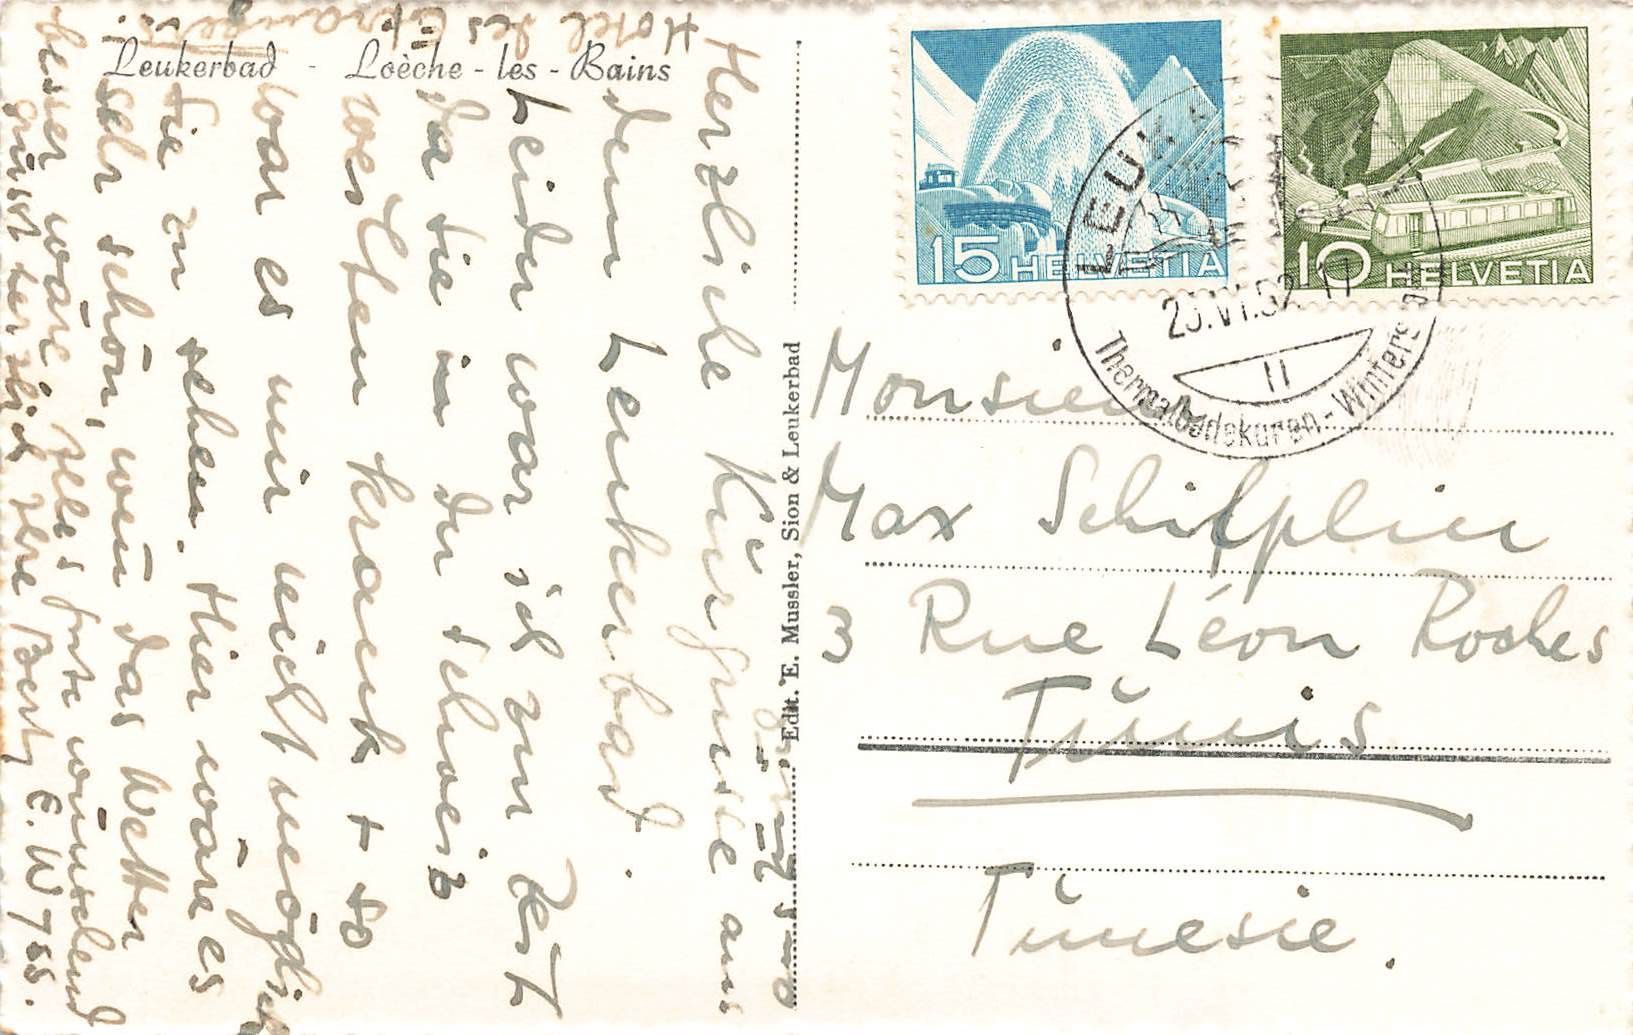 Leukerbad - Loèche-les-Bains
Hotel des Etrangers.
Herzliche Kurgrüsse aus
dem Leukerbad.
Leider war ich zur Zeit
da Sie in der Schweiz
weilten krank + so
war es mir nicht möglich
Sie zu sehen. Hier wäre es
sehr schön, wenn das Wetter
besser wäre. Alles Gute wünschend
grüsst herzlich Ihre Berty
Edit. E. Mussler, Sion & Leukerbad
15 HELVETIA
10 HELVETIA
LEUK
VI.52
Thermalbadekuren-Winters
Monsieur
Max Schifplin
3 Rue Léon Roches
Tunis
Tunesie.